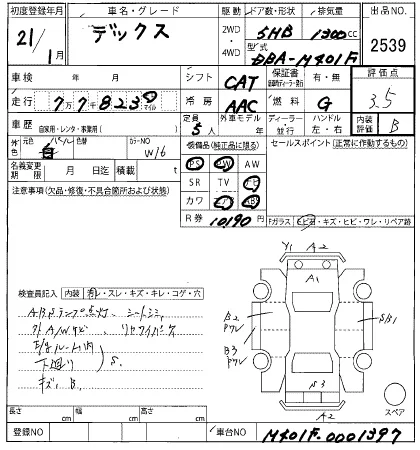 初度登録年月 車名・グレード 駆動 ドア数・形状 排気量 出品NO.
21/1月 デックス 2WD・4WD 5HB 1300cc 2539
型式 DBA-M401F
車検 年 月 シフト CAT 保証書 有・無 評価点
走行 7万7千823 マイル 冷房 AAC 燃料 G 3.5
車歴 自家用・レンタ・事業用( ) 定員 5人 外車モデル 年 ディーラー・並行 ハンドル 左・右 内装評価 B
外色 元色 パール 白 色替 カラーNO W16 装備品(純正品に限る) セールスポイント(正常に作動するもの)
名義変更期限 月 日 積載 t PS PW AW
注意事項(欠品・修復・不具合箇所および状態) SR TV ナビ
カワ エアB ABS
R券 10190円 Fガラス ヒビ有・キズ・ヒビ・ワレ・リペア跡
Y1 A2
A1
検査員記入 内装 汚レ・スレ・キズ・キレ・コゲ・穴
ABSランプ点灯、シートシミ
外A/Wサビ、リヤワイパーケ
E/gルーム内
下廻り S.
キズ、B.
B2
Pワレ
B3
Pワレ
SB1
S3
A2
スペア
長さ cm 幅 cm 高さ cm
登録NO 車台NO M401F-0001397